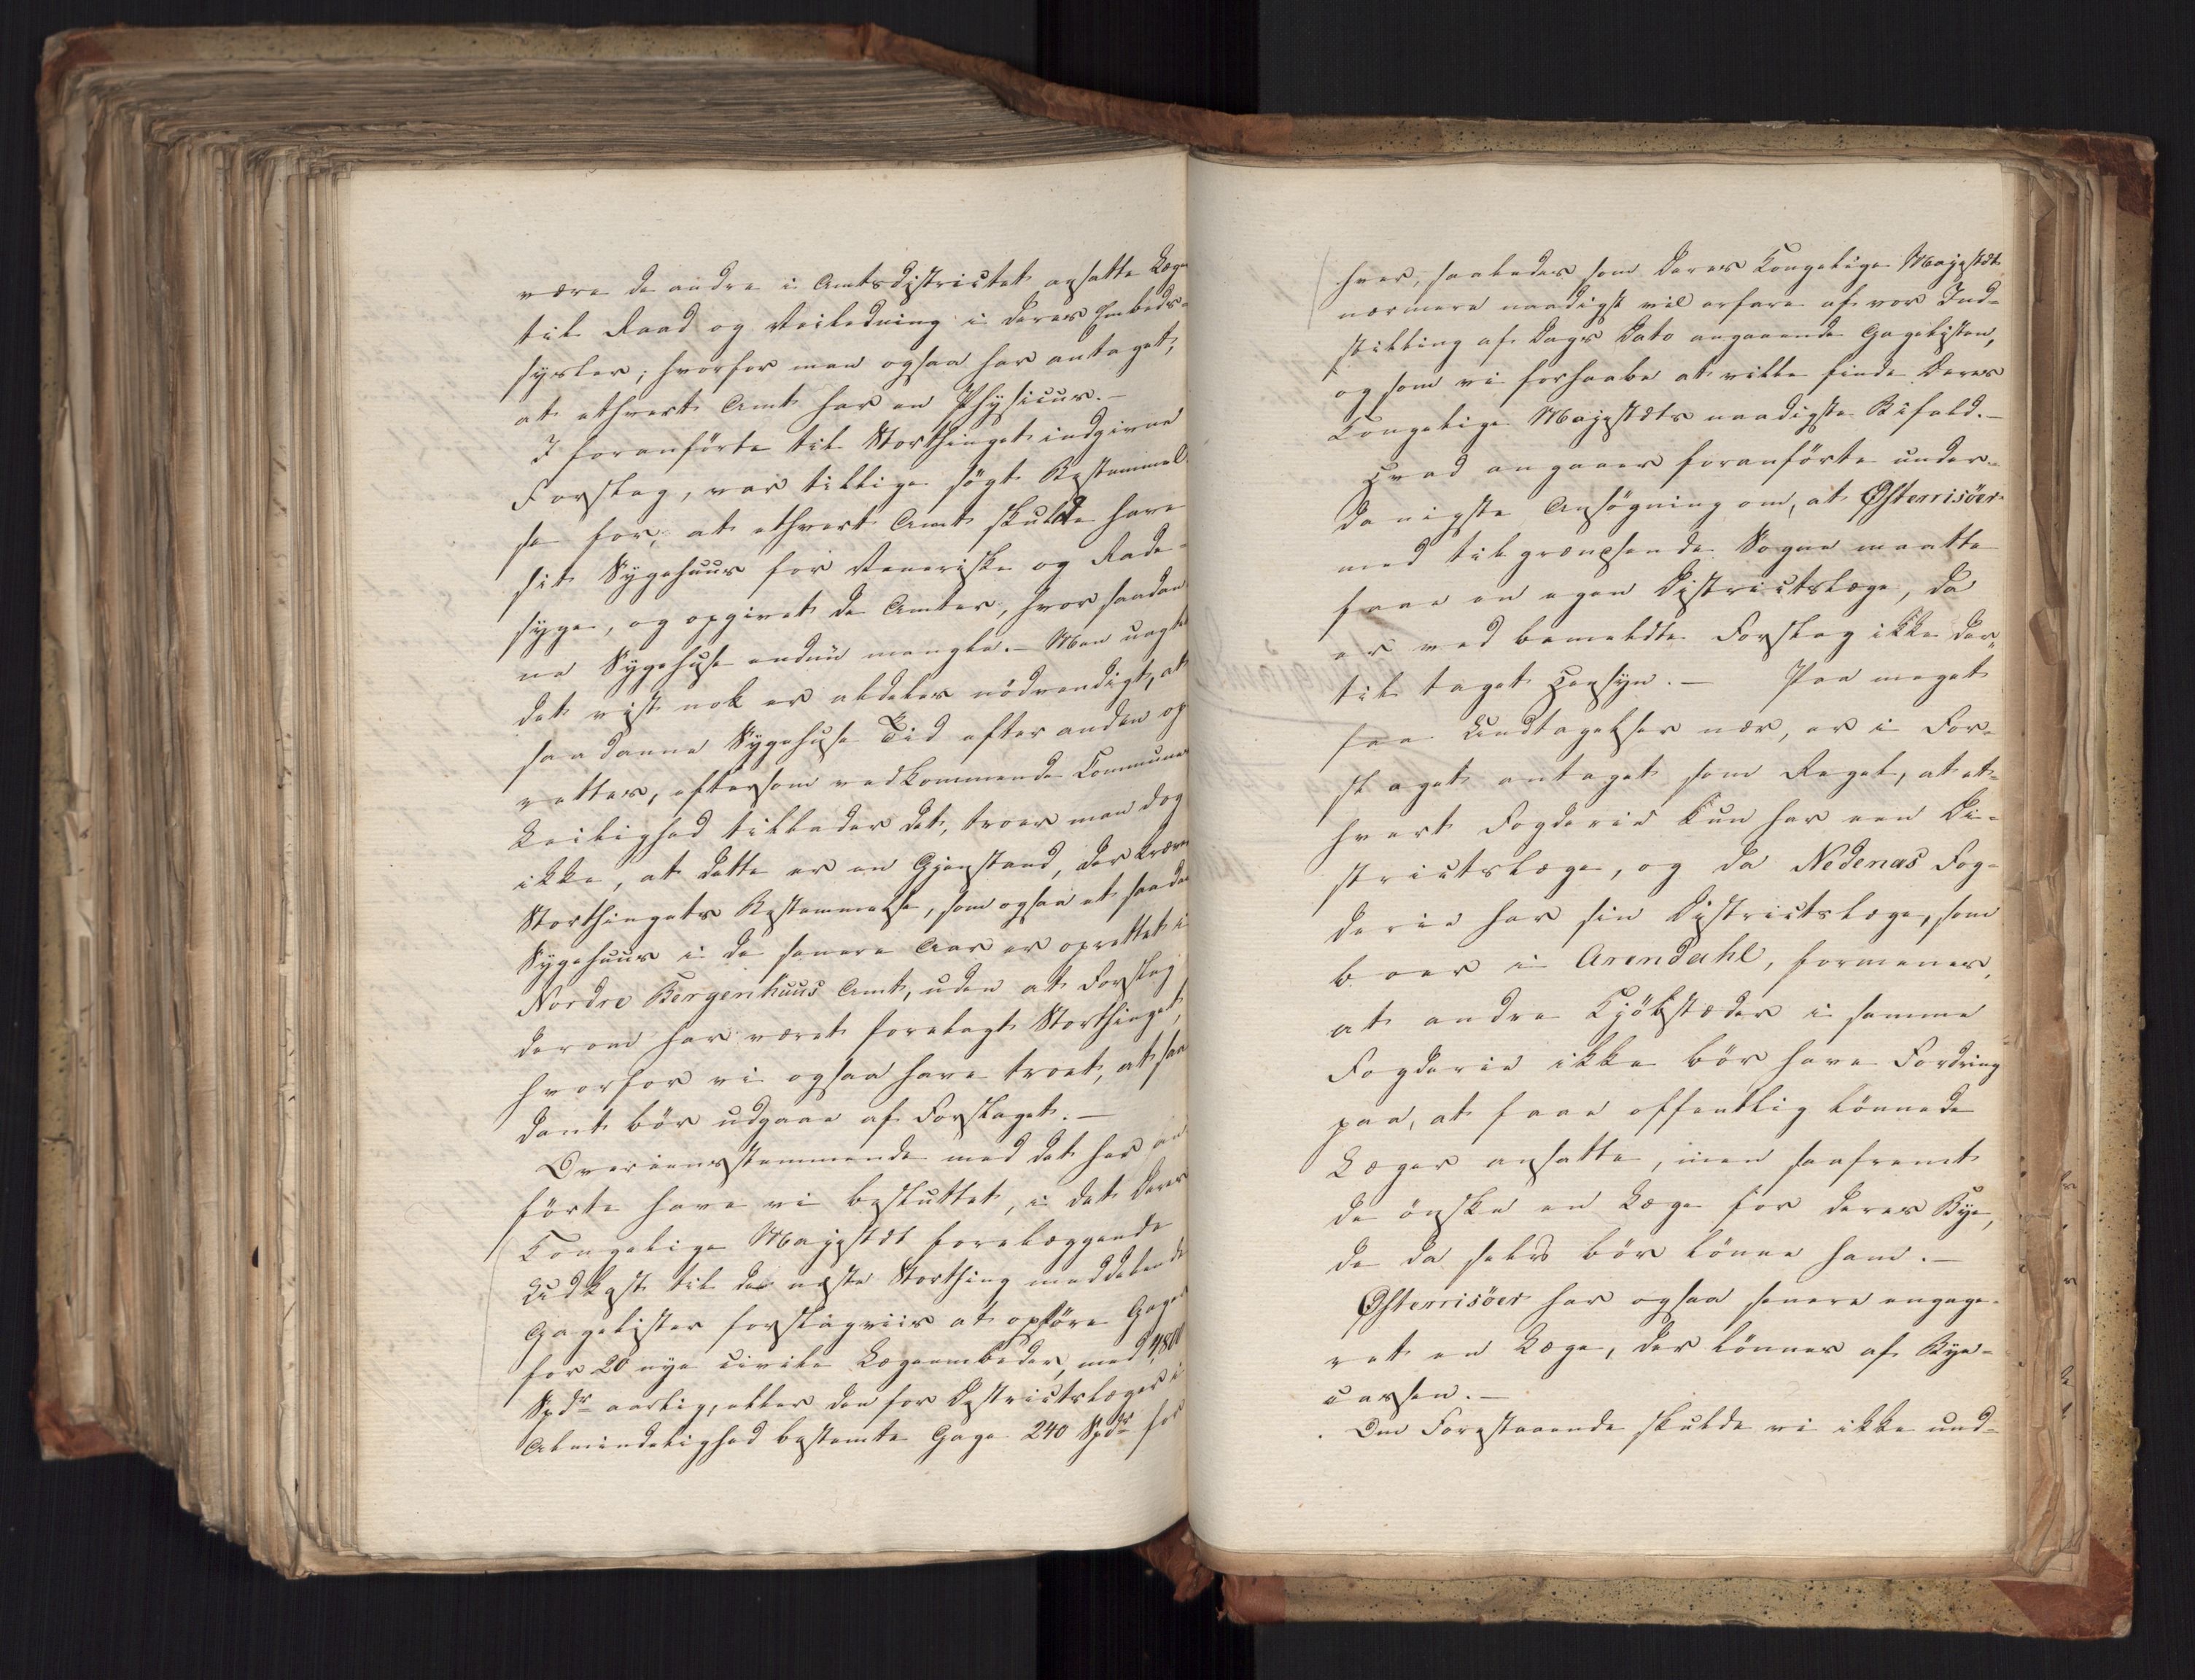 være de andre i Amtsdistrictet ansatte Læger
til Raad og Veiledning i deres Embeds-
sysler; hvorfor man ogsaa har antaget,
at ethvert Amt har en Physicus.—
I foranførte til Storthinget indgivne
Forslag, var tillige søgt Bestemmel-
se for, at ethvert Amt skulde have
sit Sygehuus for Veneriske og Rade-
syge, og opgivet de Amter, hvor saadan-
ne Sygehuse endnu mangle.— Men uagtet
det vist nok er aldeles nödvendigt, at
saadanne Sygehuse Tid efter anden op-
rettes, eftersom vedkommende Communes
Leilighed tillader det, troer man dog
ikke, at dette er en Gjenstand, der kræver
Storthingets Bestemmelse, som ogsaa et saadant
Sygehuus i de senere Aar er oprettet i
Nordre Bergenhuus Amt, uden at Forslag
derom har været forelagt Storthinget,
hvorfor vi ogsaa have troet, at saa-
dant bör udgaae af Forslaget.—
Overeensstemmende med det her an-
förte have vi besluttet, i det Deres
Kongelige Majestæt forelæggende
Udkast til de næste Storthing meddelende
Gagelister forslagviis at opföre Gager
for 20 nye civile Lægeembeder, med 4,800
Spdr aarlig, eller den for Districtslæger i
Almindelighed bestemte Gage 240 Spdr for
hver, saaledes som Deres Kongelige Majestæt
nærmere naadigst vil erfare af vor Ind-
stilling af Dags Dato angaaende Gagelisten,
og som vi forhaabe at ville finde Deres
Kongelige Majestæts naadigste Bifald.—
Hvad angaaer foranförte under-
danigste Ansögning om, at Østerrisöer
med tilgrændsende Sogne maatte
faae en egen Districtslæge, da
er ved bemeldte Forslag ikke der-
til taget Hensyn.— Paa meget
faa Undtagelser nær, er i For-
slaget antaget som Regel, at et-
hvert Fogderie kun har een Di-
strictslæge, og da Nedenæs Fog-
derie har sin Districtslæge, som
boer i Arendahl, formenes,
at andre Kjöbstæder i samme
Fogderie ikke bör have Fordring
paa, at faae offentlig lönnede
Læger ansatte, men saafremt
de önske en Læge for deres Bye,
de da selv bör lönne ham.—
Østerrisöer har ogsaa senere engage-
ret en Læge, der lönnes af Bye-
cassen.—
Om Forestaaende skulde vi ikke und-